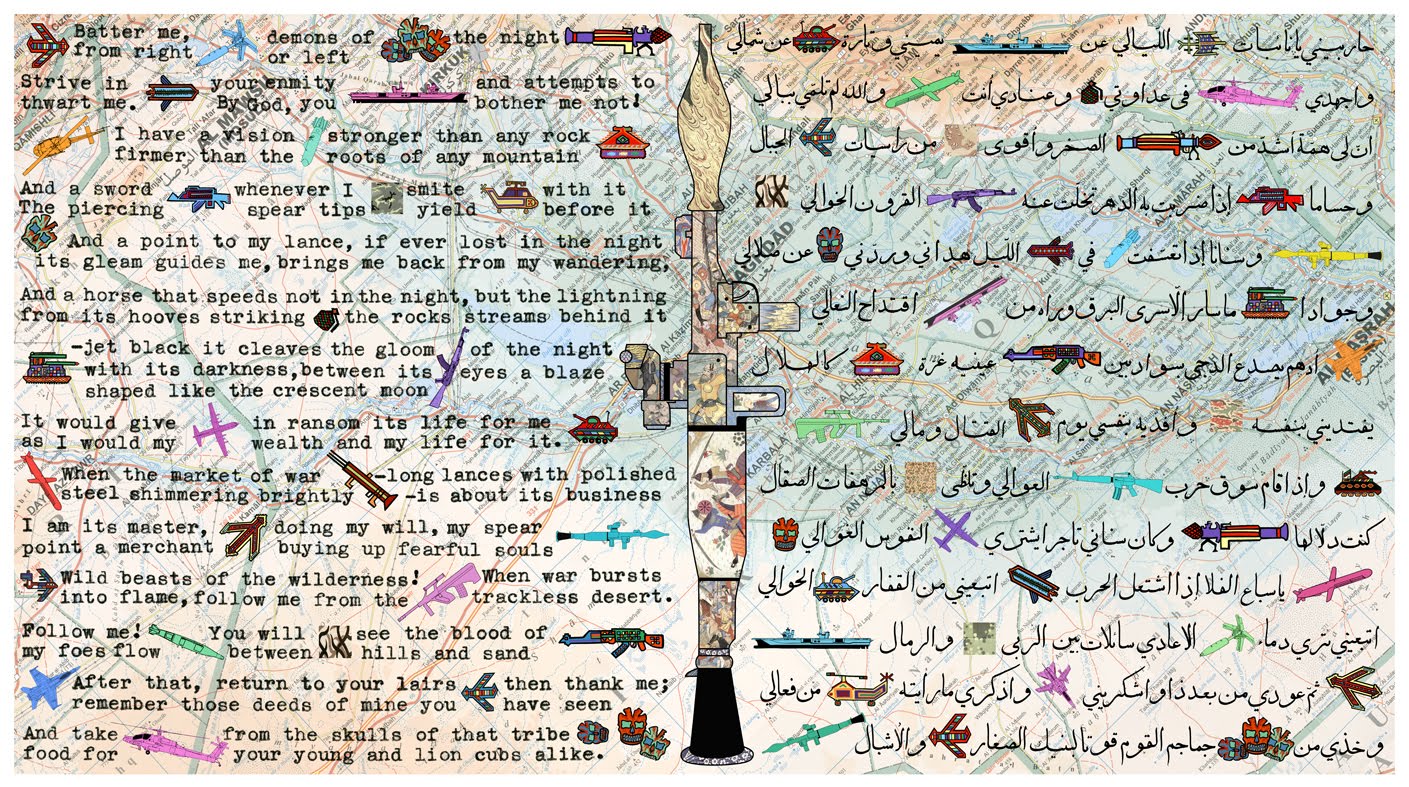 Batter me, demons of the night
from right or left
Strive in your enmity and attempts to
thwart me. By God, you bother me not!
I have a vision stronger than any rock
firmer than the roots of any mountain
And a sword whenever I smite with it
The piercing spear tips yield before it
And a point to my lance, if ever lost in the night
its gleam guides me, brings me back from my wandering,
And a horse that speeds not in the night, but the lightning
from its hooves striking the rocks streams behind it
-jet black it cleaves the gloom of the night
with its darkness, between its eyes a blaze
shaped like the crescent moon
It would give in ransom its life for me
as I would my wealth and my life for it.
When the market of war -long lances with polished
steel shimmering brightly -is about its business
I am its master, doing my will, my spear
point a merchant buying up fearful souls
Wild beasts of the wilderness! When war bursts
into flame, follow me from the trackless desert.
Follow me! You will see the blood of
my foes flow between hills and sand
After that, return to your lairs then thank me;
remember those deeds of mine you have seen
And take from the skulls of that tribe
food for your young and lion cubs alike.
حاربيني يا نائبات الليالي عن يميني وتارة عن شمالي
واجهدي في عداوتي وعنادي أنت والله لم تلمّي ببالي
ان لي همّة أشدّ من الصخر وأقوى من راسيات الجبال
وحساما إذا ضربت به الدهر تخلّت عنه القرون الخوالي
وسنانا إذا تعسّفت في الليل هداني وردني عن ضلالي
وجوادا ما سار الّا سرى البرق وراه من اقتداح النعالي
ادهم يصدع الدجى بسواد بين عينيه غرّة كالهلال
يفتديني بنفسه وافديه بنفسي يوم القتال ومالي
واذا قام سوق حرب العوالي وتلظّى بالمرهفات الصقال
كنت دلّالها وكان سناني تاجرا يشتري النفوس الغوالي
يا سباع الفلا إذا اشتعل الحرب اتبعيني من القفار الخوالي
اتبعيني تري دماء الاعادي سائلات بين الربى والرمال
ثم عودي من بعد ذا واشكريني واذكري ما رأيته من فعالي
وخذي من جماجم القوم قوتا لبنيك الصغار والأشبال